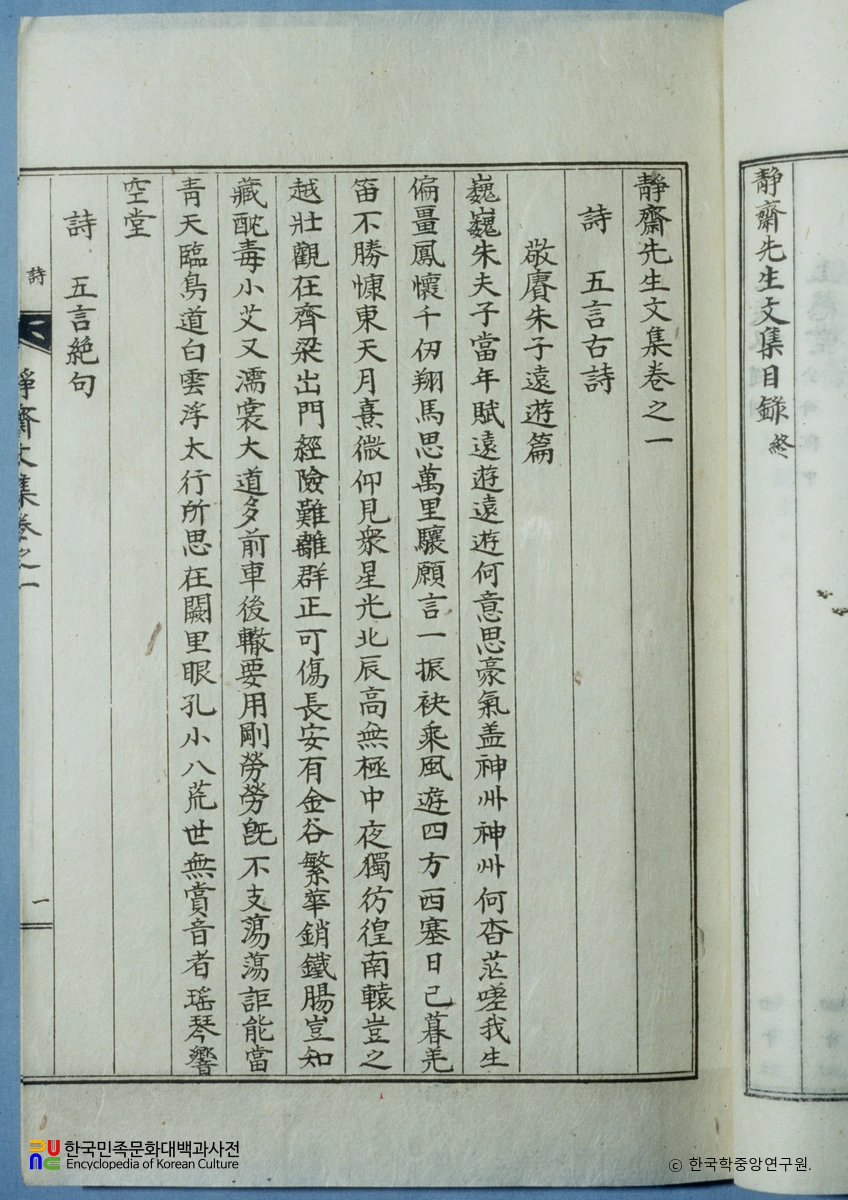 靜齋先生文集目錄終
靜齋先生文集卷之一
詩 五言古詩
敬賡朱子遠遊篇
巍巍朱夫子當年賦遠遊遠遊何意思豪氣盖神州神州何杳茫嗟我生
偏畺鳳懷千仞翔馬思萬里驤願言一振袂乘風遊四方西塞日已暮羌
笛不勝慷東天月熹微仰見衆星光北辰高無極中夜獨彷徨南轅豈之
越壯觀在齊梁出門經險難離群正可傷長安有金谷繁華銷鐵腸豈知
藏酖毒小艾又濡裳大道多前車後轍要用剛勞勞旣不支蕩蕩詎能當
靑天臨鳥道白雲浮太行所思在闕里眼孔小八荒世無賞音者瑤琴響
空堂
詩 五言絶句
詩
靜齋文集卷之一
一
한국민족문화대백과사전
Encyclopedia of Korean Culture
ⓒ 한국학중앙연구원.